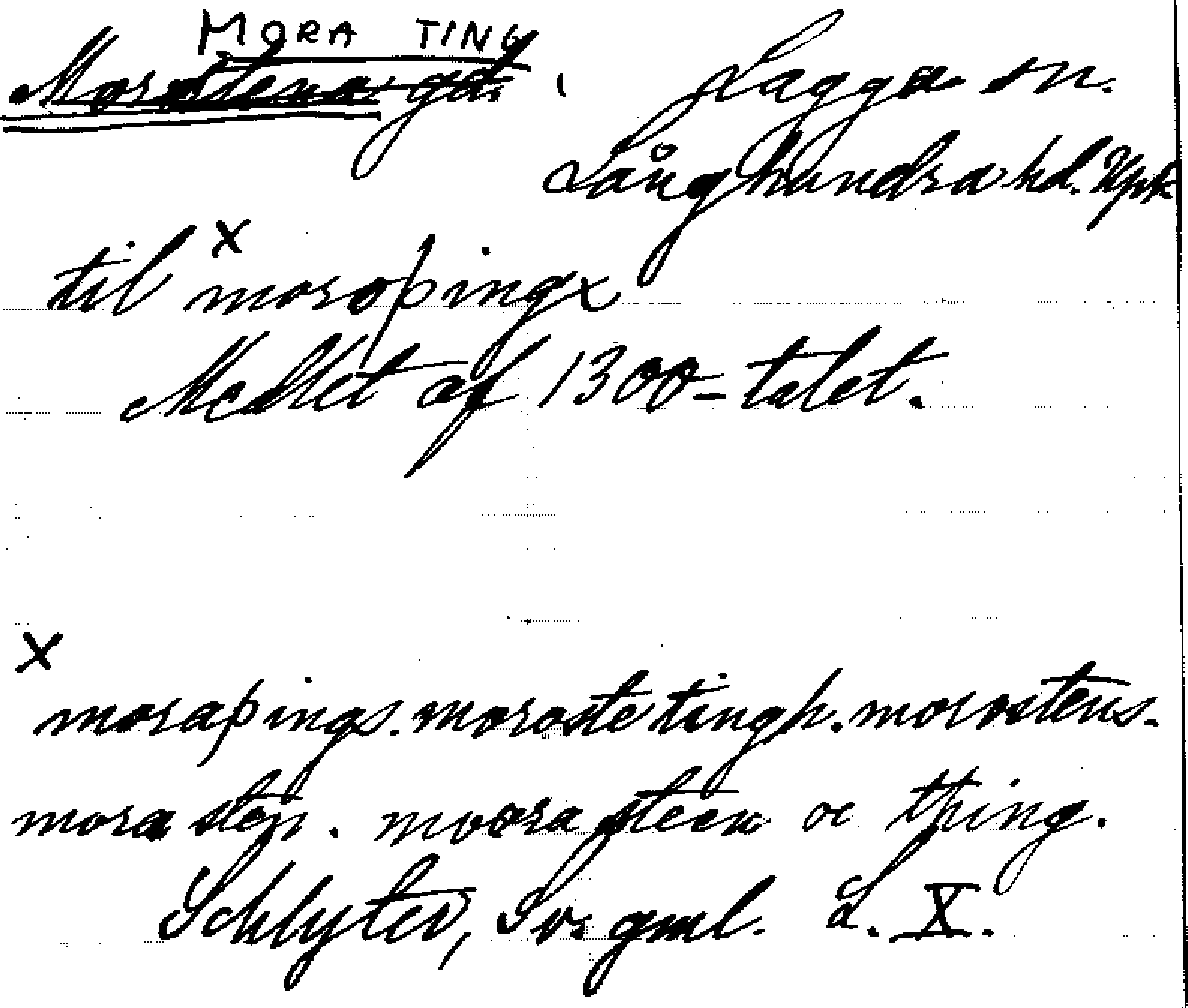 MORA TING
Morastena gd. Lagga sn.
Långhundra hd. Upl.
til x moroþingx
Medlet af 1300-talet.
x
moraþings. moroste tingh. morostens.
mora sten. moora steen oc thing.
Schlyter, Sv. gml. L. X.